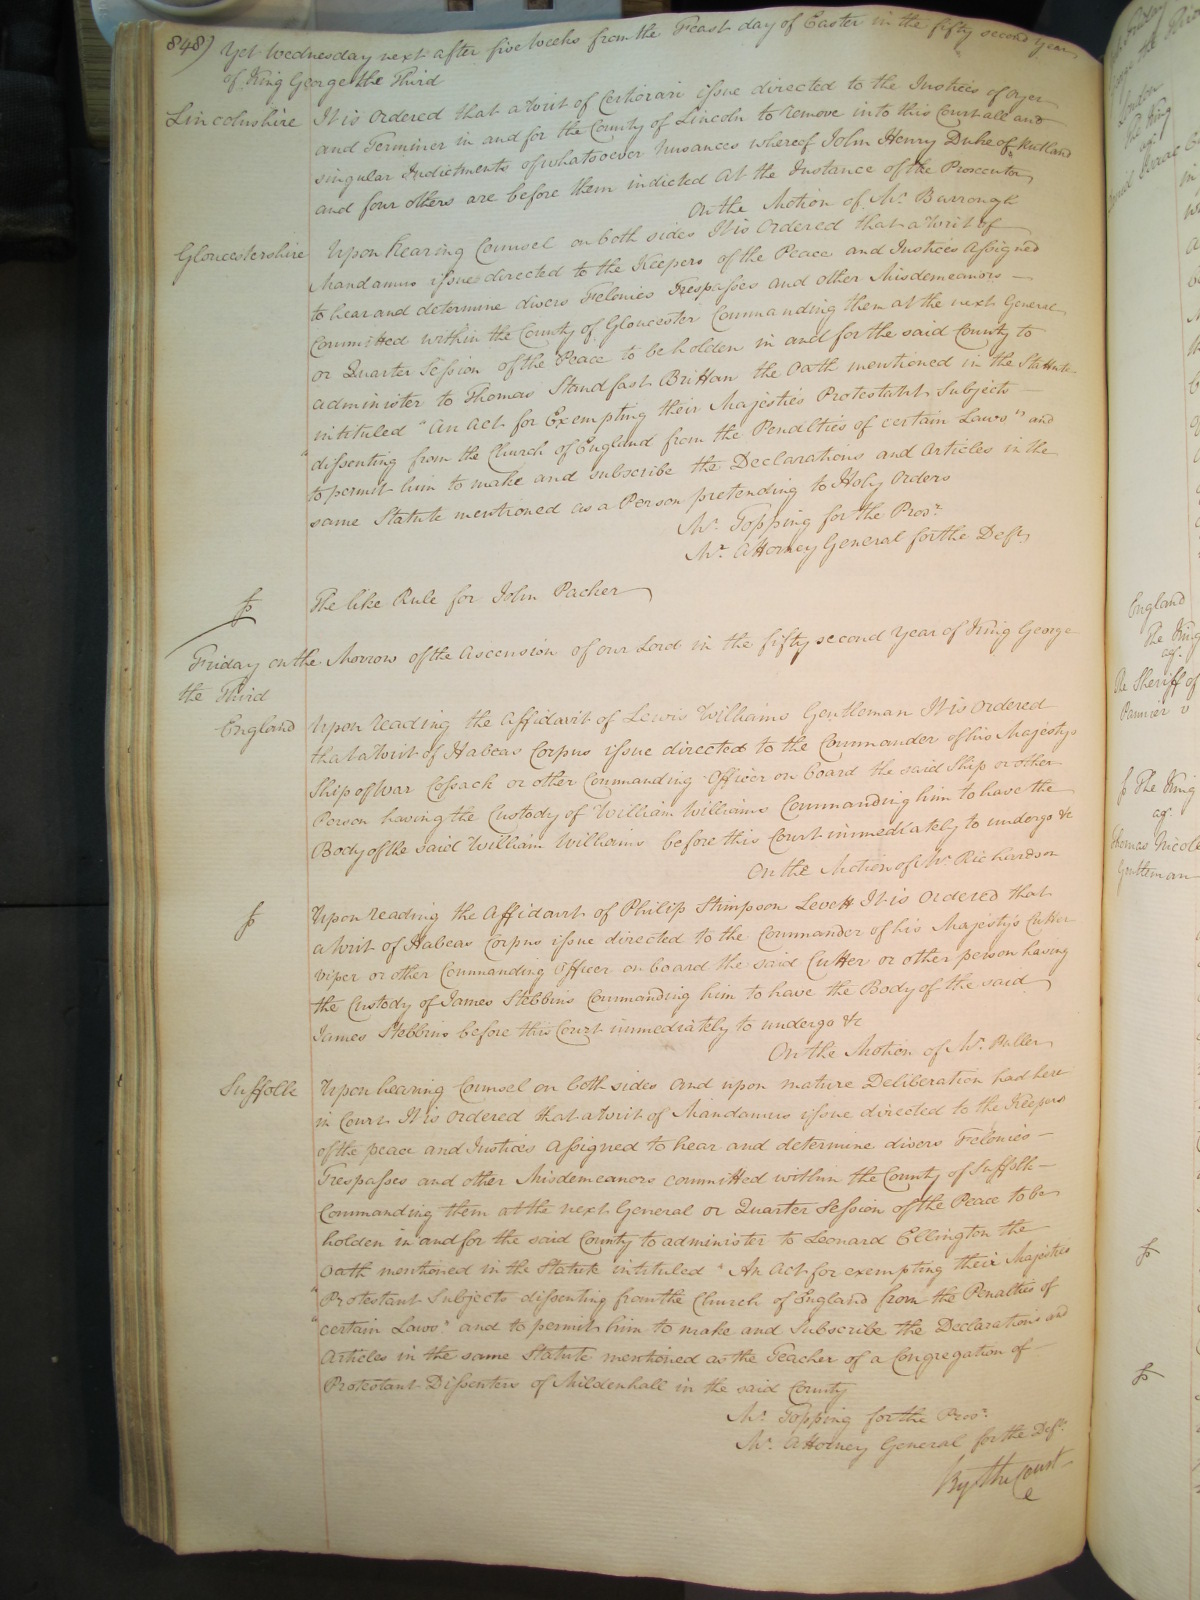 848) Yet Wednesday next after five Weeks from the Feast day of Easter in the fifty second year
of King George the Third
Lincolnshire It is ordered that a Writ of Certiorari issue directed to the Justices of Oyer
and Terminer in and for the County of Lincoln to remove into this Court all and
singular Indictments of whatsoever Nusances whereof John Henry Duke of Rutland
and four others are before them indicted At the Instance of the Prosecutor
On the Motion of Mr. Barrough
Gloucestershire Upon hearing Counsel on both sides It is Ordered that a Writ of
Mandamus issue directed to the Keepers of the Peace and Justices Assigned
to hear and determine divers Felonies Trespasses and other Misdemeanors —
Committed within the County of Gloucester Commanding them at the next General
or Quarter Session of the Peace to be holden in and for the said County to
administer to Thomas Standfast Brittan the Oath mentioned in the Statute
intituled "An Act for Exempting their Majesties Protestant Subjects
"dissenting from the Church of England from the Penalties of certain Laws" and
to permit him to make and subscribe the Declarations and Articles in the
same Statute mentioned as a Person pretending to Holy Orders
Mr. Topping for the Prosr.
Mr. Attorney General for the Deft
The like Rule for John Packer
Friday on the Morrow of the Ascension of our Lord in the fifty second Year of King George
the Third
England Upon reading the Affidavit of Lewis Williams Gentleman It is ordered
that a Writ of Habeas Corpus issue directed to the Commander of his Majestys
Ship of War Cossack or other Commanding Officer on board the said Ship or other
Person having the Custody of William Williams Commanding him to have the
Body of the said William Williams before this Court immediately to undergo &c
On the Motion of Mr Richardson
Upon reading the Affidavit of Philip Stimpson Levett It is Ordered that
a Writ of Habeas Corpus issue directed to the Commander of his Majesty's Cutter
Viper or other Commanding Officer on board the said Cutter or other person having
the Custody of James Stebbins Commanding him to have the Body of the said
James Stebbins before this Court immediately to undergo &c
On the Motion of Mr. Puller
Suffolk Upon hearing Counsel on both sides and upon mature Deliberation had here
in Court It is ordered that a Writ of Mandamus issue directed to the Keepers
of the peace and Justices Assigned to hear and determine divers Felonies —
Trespasses and other Misdemeanors committed within the County of Suffolk —
Commanding them at the next General or Quarter Session of the Peace to be
holden in and for the said County to administer to Leonard Ellington the
Oath mentioned in the Statute intituled "An Act for exempting their Majesties
"Protestant Subjects dissenting from the Church of England from the Penalties of
"certain Laws" and to permit him to make and Subscribe the Declarations and
Articles in the same Statute mentioned as the Teacher of a Congregation of
Protestant Dissenters of Mildenhall in the said County
Mr. Topping for the Prosr.
Mr. Attorney General for the Deft.
By the Court
London
The King
agt.
England
The King
agt.
The Sheriff of
The King
agt.
Thomas Nicole
Gentleman